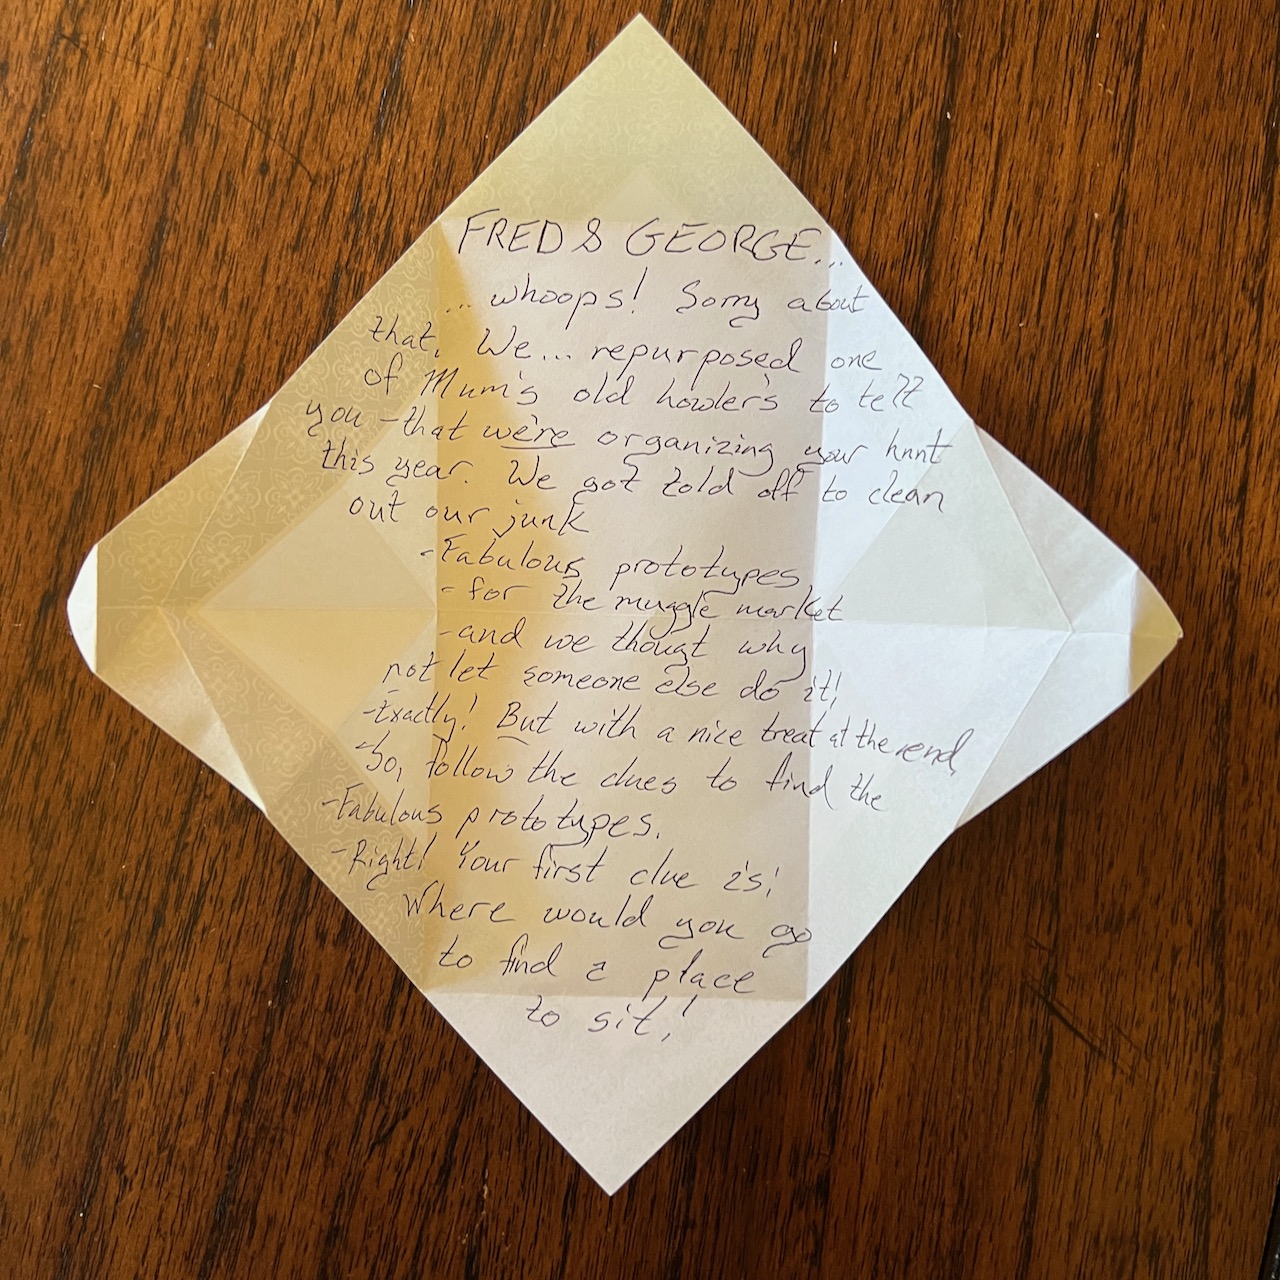 FRED & GEORGE...
... whoops! Sorry about
that. We... repurposed one
of Mum's old howler's to tell
you - that we're organizing your hunt
this year. We got told off to clean
out our junk
- Fabulous prototypes
- for the muggle market
- and we thougt why
not let someone else do it!
- Exactly! But with a nice treat at the end.
- So, follow the clues to find the
- Fabulous prototypes.
- Right! Your first clue is:
Where would you go
to find a place
to sit!